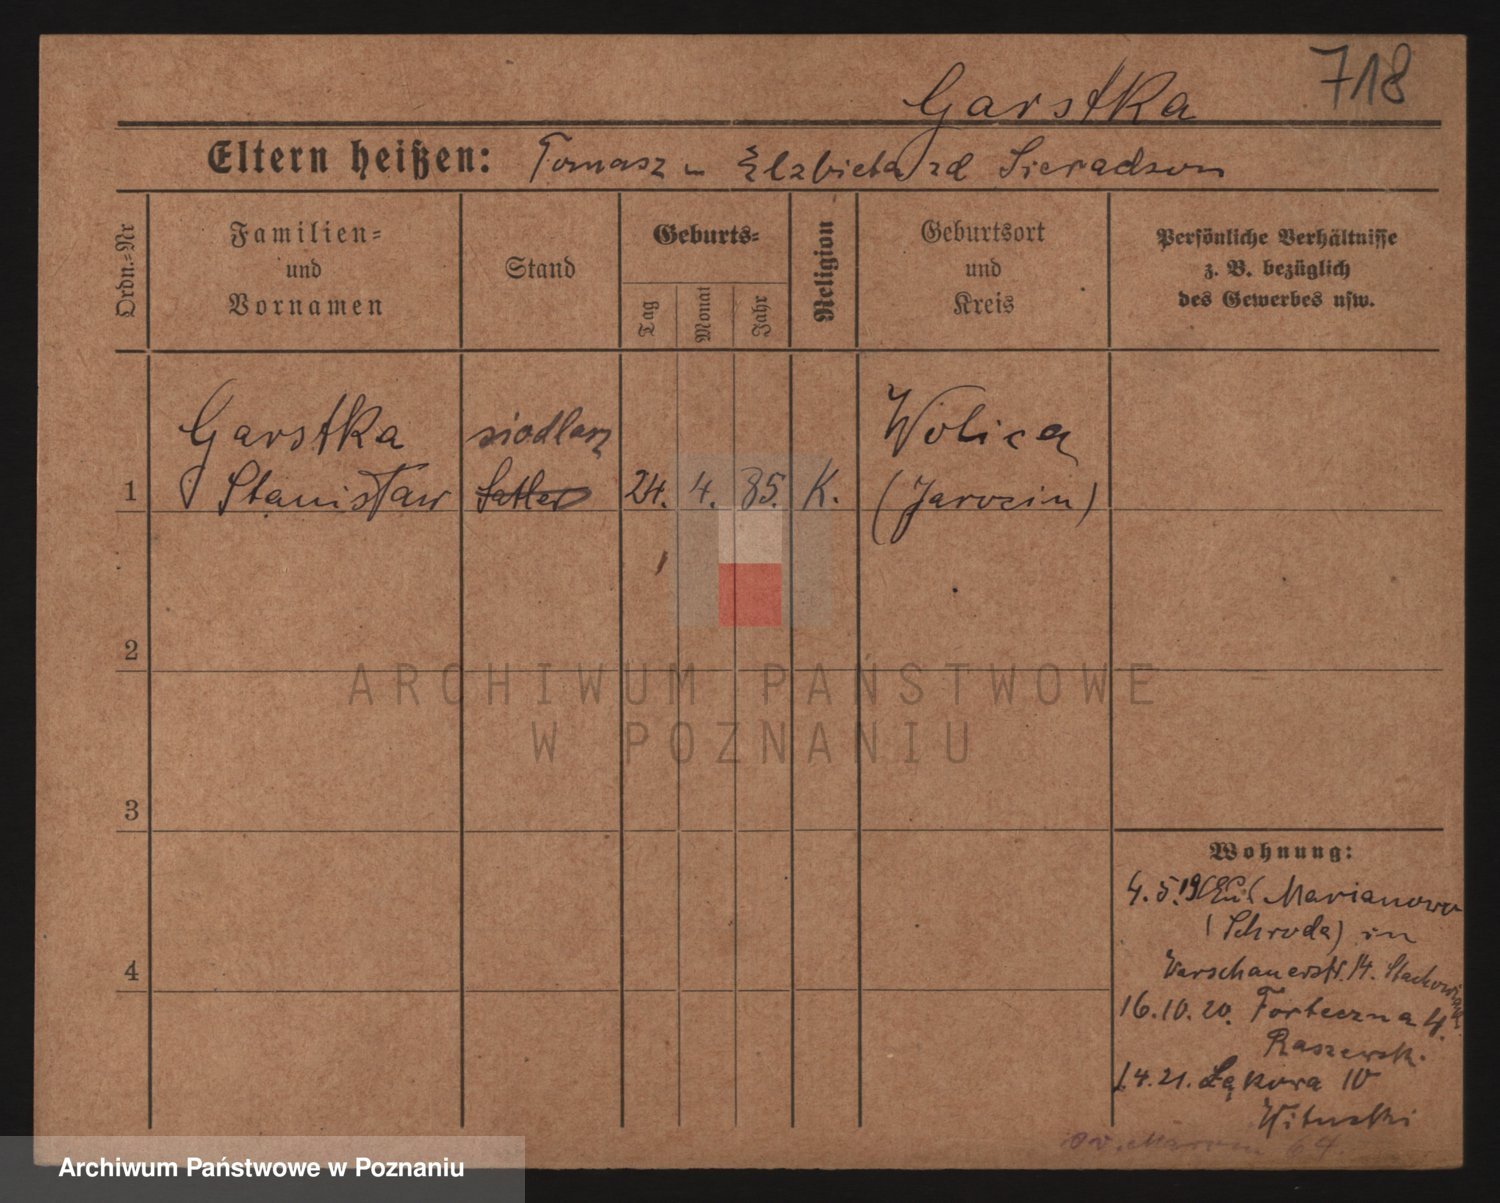 718
Garstka
Eltern heißen: Tomasz u Elzbieta zd Sieradzon
Ordn.=Nr
Familien=
und
Vornamen
Stand
Geburts=
Tag
Monat
Jahr
Religion
Geburtsort
und
Kreis
Persönliche Verhältnisse
z. B. bezüglich
des Gewerbes usw.
Garstka siodlarz Wolica
1 Stanisław Satler 24. 4. 85. K. (Jarocin)
2
ARCHIWUM PAŃSTWOWE
W POZNANIU
3
4
Wohnung:
4.5.19 Marianowo
(Schroda) in
Warschauerstr. 14. Stachowiak
16.10.20. Forteczna 4.
Raszewsk.
1.4.21. Łąkowa 10
Wituski
Archiwum Państwowe w Poznaniu